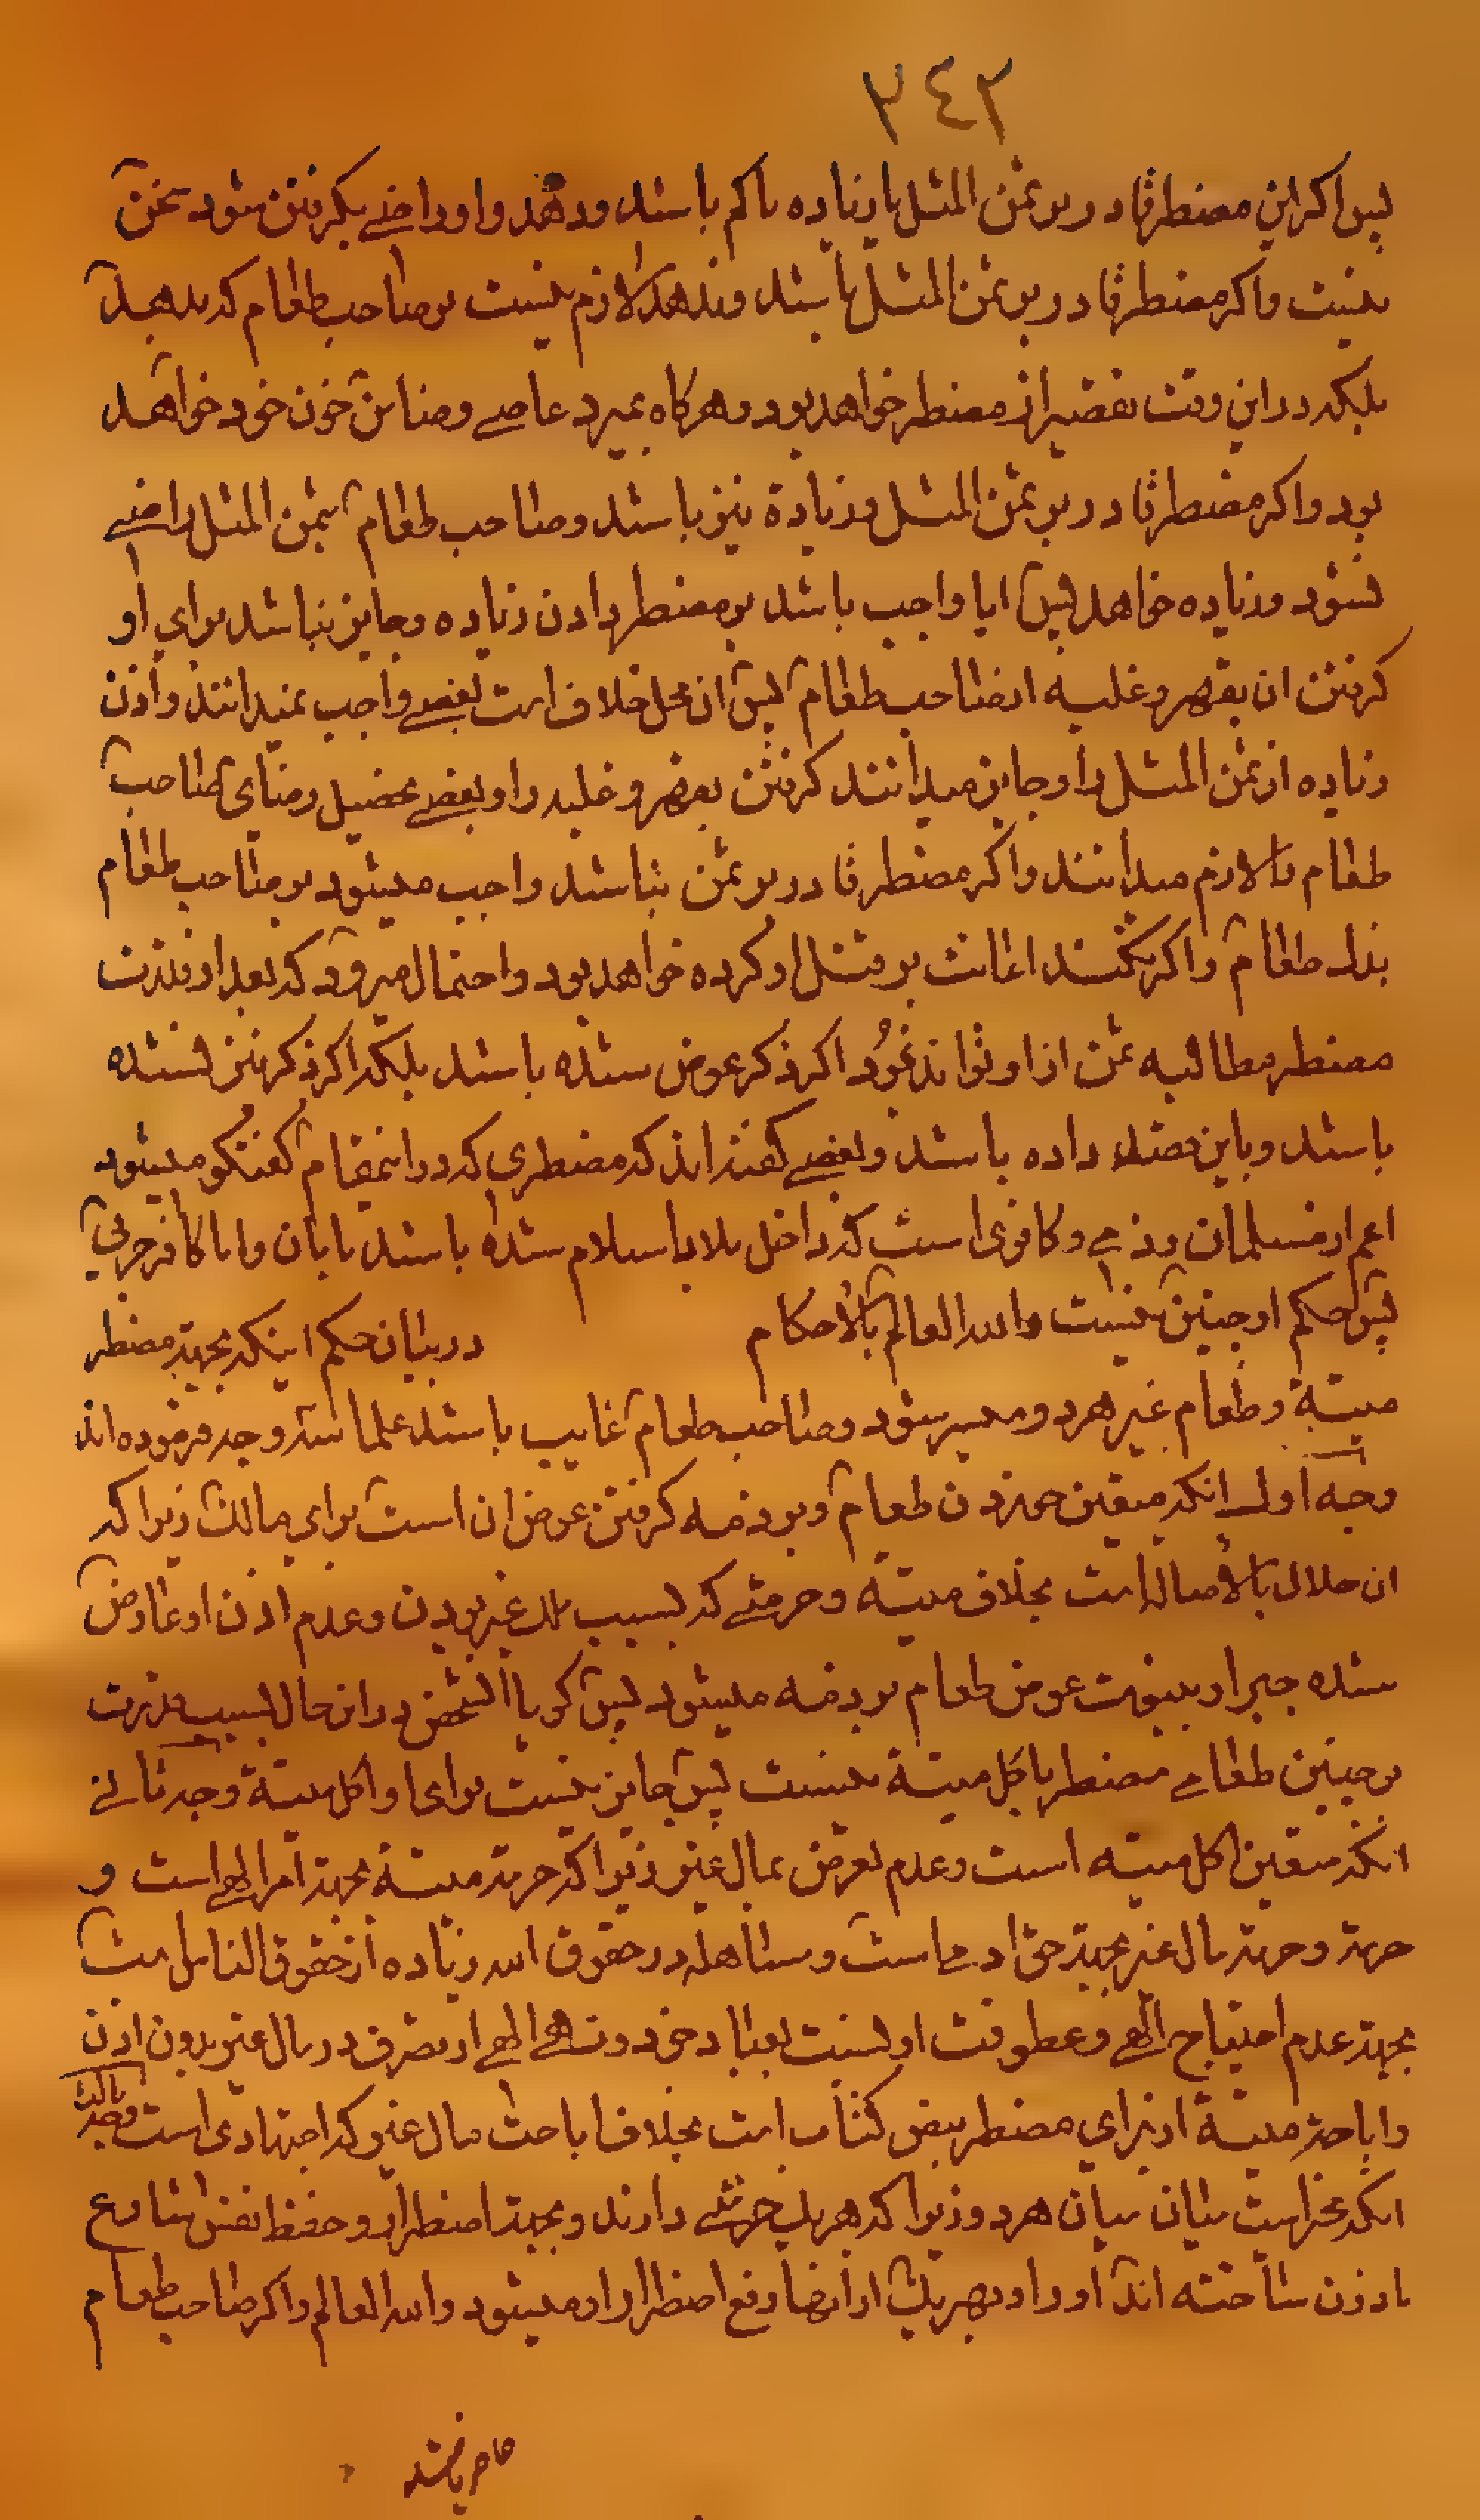 ٣٤٢
پس اکر این مضطر قادر بر ثمن المثل یا زیاده یا کم باشد و دهد و او راضی بکرفتن شود سخن
نیست و اکر مضطر قادر بر ثمن المثل باشد و ندهد لازم نیست بر صاحب طعام که بدهد
بلکه در این وقت تقصیر از مضطر خواهد بود و هرکاه بمیرد عاصی و ضامن خون خود خواهد
بود و اکر مضطر قادر بر ثمن المثل و زیادة نیز باشد و صاحب طعام بثمن المثل راضی
نشود و زیاده خواهد پس ایا واجب باشد بر مضطر دادن زیاده و جایز نباشد برای او
کرفتن ان بقهر و غلبه از صاحب طعام پس ان محل خلاف است بعضی واجب نمیدانند دادن
زیاده از ثمن المثل را و جایز میدانند کرفتن بقهر و غلبه را و بعضی تحصیل رضای صاحب
طعام را لازم میدانند و اکر مضطر قادر بر ثمن نباشد واجب میشود بر صاحب طعام
بذل طعام و اکر نکند اعانت بر قتل او کرده خواهد بود و احتمال میرود که بعد از قدرت
مضطر مطالبه ثمن از او تواند نمود اکر ذکر عوض شده باشد بلکه اکر ذکر ثمن نشده
باشد و باین قصد داده باشد و بعضی کفته اند که مضطری که در اینمقام کفتکو میشود
اعم از مسلمان و ذمی و کافری است که داخل بلاد اسلام شده باشد بامان و اما کافر حربی
پس حکم او چنین نیست والله العالم بالاحکام در بیان حکم اینکه بجهة مضطر
میتة و طعام غیر هر دو میسر شود و صاحب طعام غایب باشد علما سه وجه فرموده اند
وجه اول انکه متعین خوردن طعام و بر ذمه کرفتن عوض ان است برای مالک زیرا که
ان حلال بالاصاله است بخلاف میتة و حرمتی که بسبب ملک غیر بودن و عدم اذن او عارض
شده جبر او بثبوت عوض طعام بر ذمه میشود پس کویا انشخص در ان حال بسبب قدرت
بر چنین طعامی مضطر باکل میتة نیست پس جایز نیست برای او اکل میتة وجه ثانی
انکه متعین اکل میته است و عدم تعرض بمال غیر زیرا که حرمة میتة بجهة امر الهی است و
حرمة و حرمة مال غیر بجهة حق ادمی است و مساهله در حقوق الله زیاده از حقوق الناس است
بجهة عدم احتیاج الهی و عطوفت او نسبت بعباد خود و نهی الهی از تصرف در مال غیر بدون اذن
و اباحة میتة از برای مضطر بنص کتاب است بخلاف اباحت مال غیر که اجتهادی است وجه ثالث
انکه مخیر است میان میان هر دو زیرا که هر یک حرمتی دارند و بجهة اضطرار و حفظ نفس شارع
ماذون ساخته اند او را و بهر یک از انها رفع اضطرار او میشود والله العالم و اکر صاحب طعام
حاضر باشد